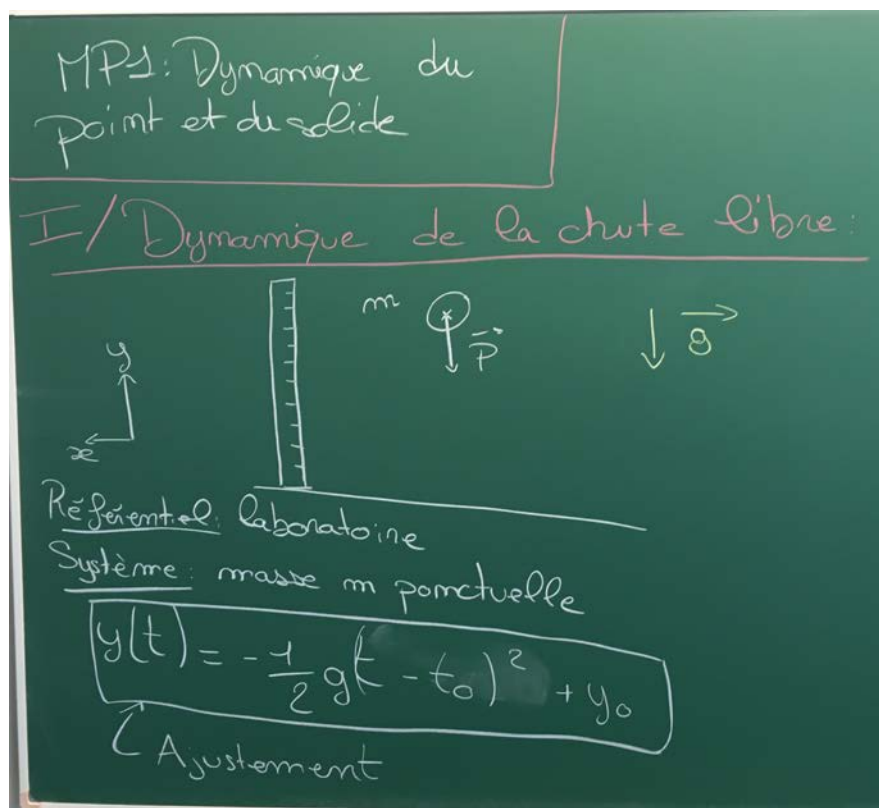 MP1: Dynamique du
point et du solide
I/ Dynamique de la chute libre:
m
P
g
y
x
Référentiel: laboratoire
Système: masse m ponctuelle
y(t) = -1/2 g(t - t₀)² + y₀
Ajustement